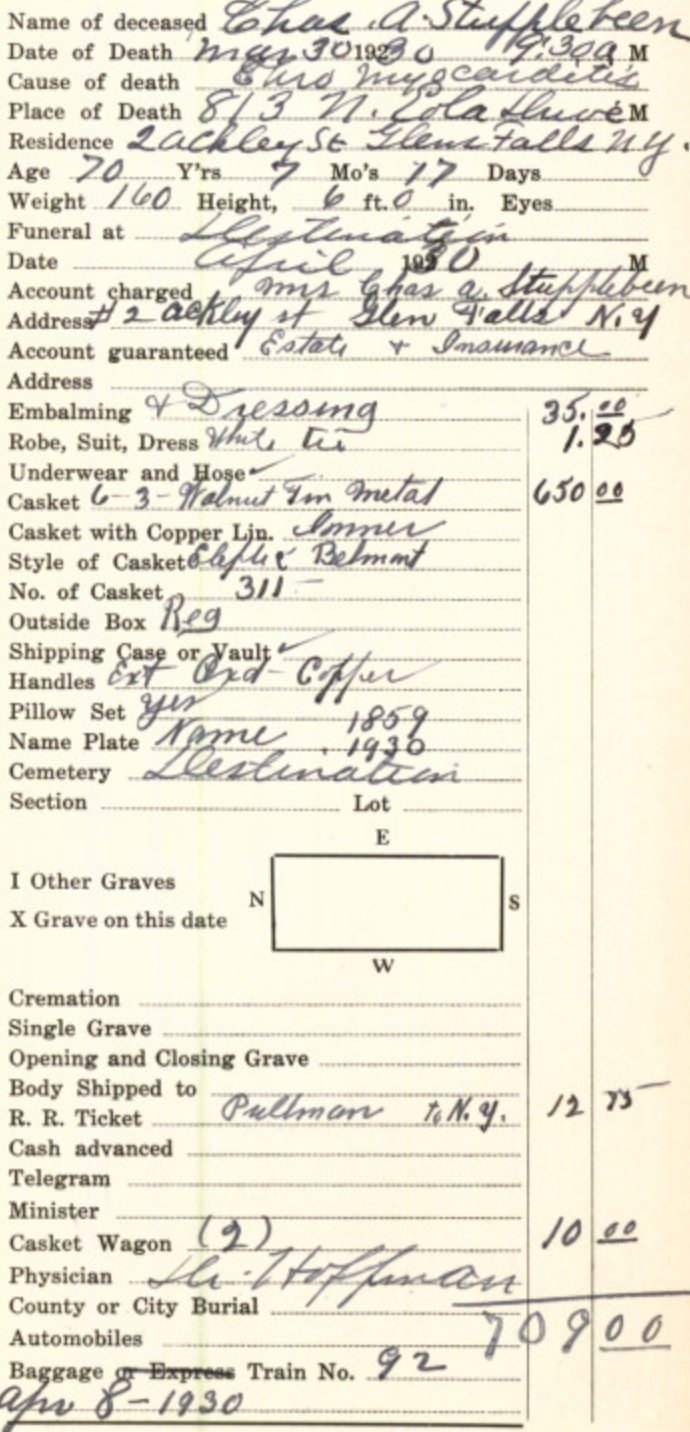 Name of deceased Chas. A. Stupplebeen
Date of Death Mar 30 1920 30 9:30 a M
Cause of death Chro myocarditis
Place of Death 813 N. Eola Drive M
Residence 2 Ackley St Glens Falls N.Y.
Age 70 Y'rs 7 Mo's 17 Days
Weight 160 Height, 6 ft. 0 in. Eyes
Funeral at Destination
Date April 1930 M
Account charged Mrs Chas A. Stupplebeen
Address #2 Ackley St Glen Falls N.Y
Account guaranteed Estate + Insurance
Address
Embalming & Dressing 35.00
Robe, Suit, Dress White tie 1.25
Underwear and Hose ✓
Casket 6-3- Walnut Metal 650 00
Casket with Copper Lin. Inner
Style of Casket Belmont
No. of Casket 311-
Outside Box Reg
Shipping Case or Vault ✓
Handles Ext Oxd- Copper
Pillow Set yes
Name Plate Name 1859
1930
Cemetery Destination
Section Lot
E
I Other Graves
N S
X Grave on this date
W
Cremation
Single Grave
Opening and Closing Grave
Body Shipped to
R. R. Ticket Pullman to N.Y. 12 75
Cash advanced
Telegram
Minister
Casket Wagon (2) 10 00
Physician Dr. Hoffman
County or City Burial
Automobiles 709 00
Baggage or Express Train No. 92
Apr 8-1930